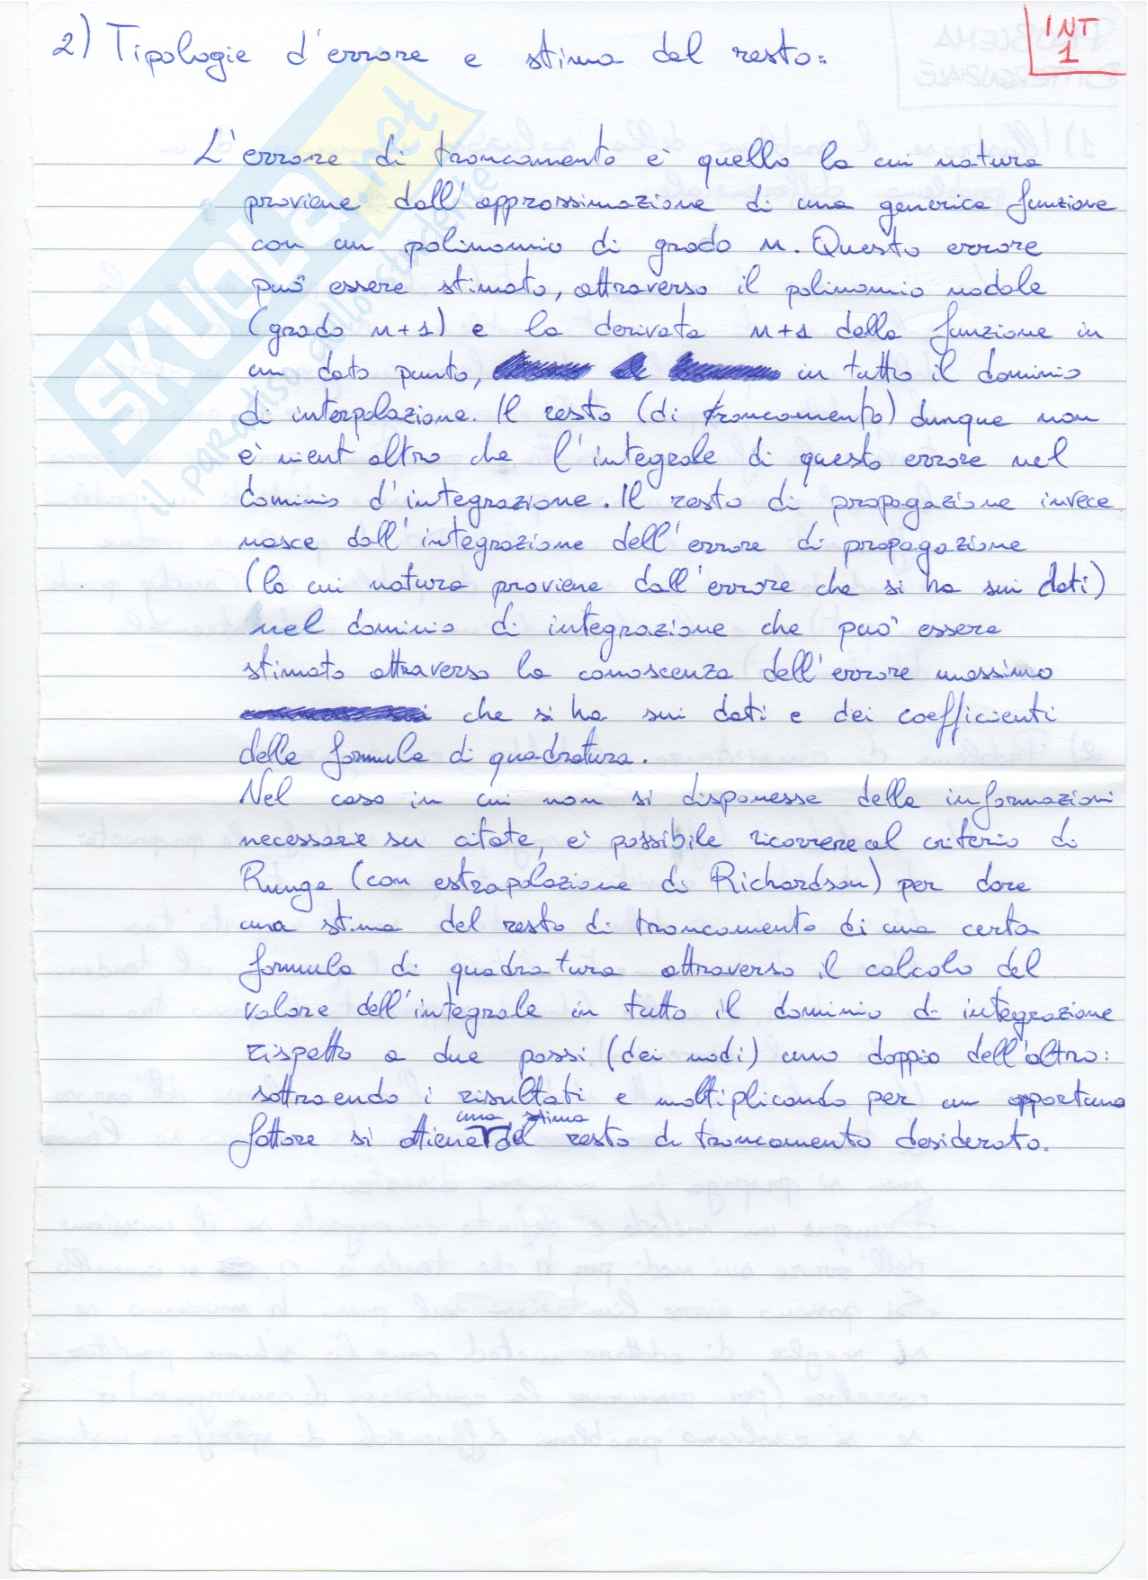 INT
1
2) Tipologie d'errore e stima del resto:
L'errore di troncamento è quello la cui natura
proviene dall'approssimazione di una generica funzione
con un polinomio di grado n. Questo errore
può essere stimato, attraverso il polinomio nodale
(grado n+1) e la derivata n+1 della funzione in
un dato punto, in tutto il dominio
di interpolazione. Il resto (di troncamento) dunque non
è nient'altro che l'integrale di questo errore nel
dominio d'integrazione. Il resto di propagazione invece
nasce dall'integrazione dell'errore di propagazione
(la cui natura proviene dall'errore che si ha sui dati)
nel dominio di integrazione che può essere
stimato attraverso la conoscenza dell'errore massimo
che si ha sui dati e dei coefficienti
della formula di quadratura.
Nel caso in cui non si disponesse delle informazioni
necessarie su citate, è possibile ricorrere al criterio di
Runge (con estrapolazione di Richardson) per dare
una stima del resto di troncamento di una certa
formula di quadratura attraverso il calcolo del
valore dell'integrale in tutto il dominio di integrazione
rispetto a due passi (dei nodi) uno doppio dell'altro:
sottraendo i risultati e moltiplicando per un opportuno
fattore si ottiene una stima del resto di troncamento desiderato.
SKUOLA.net
il paradiso dello studente